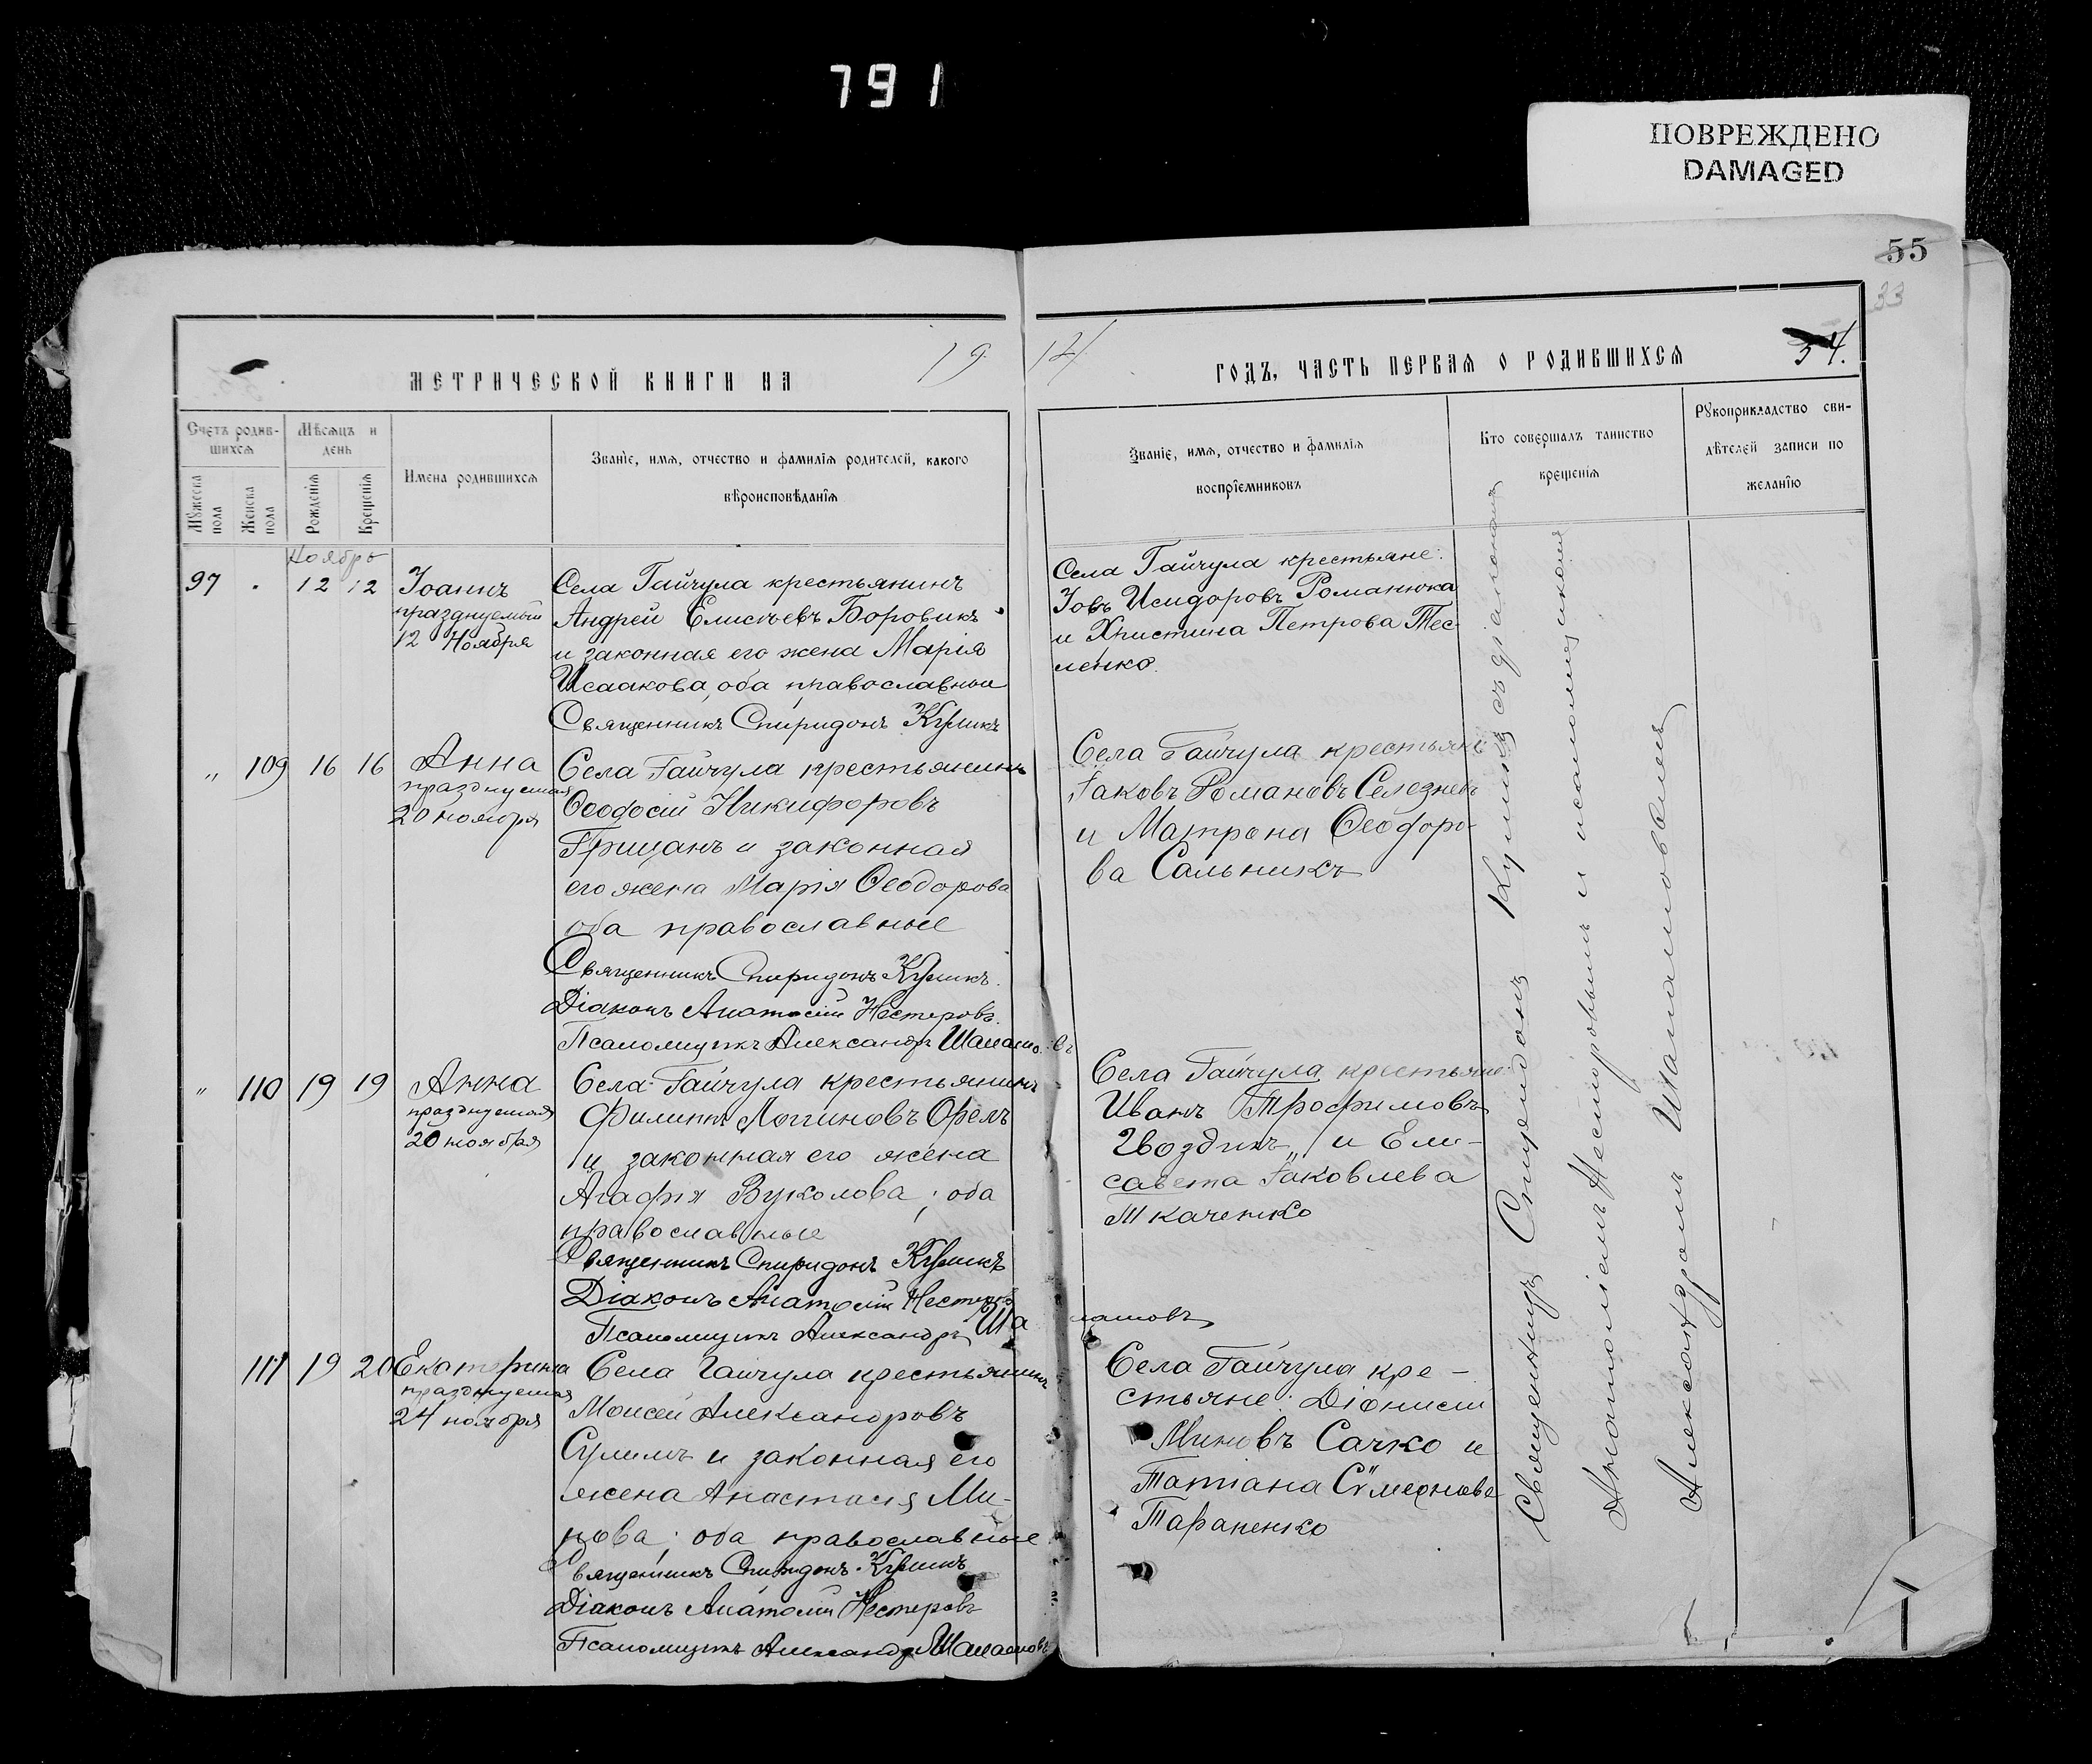 791
ПОВРЕЖДЕНО
DAMAGED
55
33
34.
МЕТРИЧЕСКОЙ КНИГИ НА 19
14 ГОДЪ, ЧАСТЬ ПЕРВАЯ О РОДИВШИХСЯ
Счетъ родив-
шихся
Мѣсяцъ и
день
Мꙋжеска
пола
Женска
пола
Рожденїя
Крещенїя
Имена родившихся
Званїе, имя, отчество и фамилїя родителей, какого
вѣроисповѣданїя
Званїе, имя, отчество и фамилїя
воспрїемниковъ
Кто совершалъ таинство
крещенїя
Рꙋкоприкладство сви-
дѣтелей записи по
желанїю
Ноябрь
97 . 12 12
Іоаннъ
празднуемый
12 Ноября
Села Гайчула крестьянинъ
Андрей Елисѣевъ Боровикъ
и законная его жена Марія
Исаакова, оба православные
Священникъ Спиридонъ Куликъ
Села Гайчула крестьяне:
Іовъ Исидоровъ Романюка
и Христина Петрова Тес-
ленко.
„ 109 16 16
Анна
празднуемая
20 ноября
Села Гайчула крестьянинъ
Ѳеодосій Никифоровъ
Грицанъ и законная
его жена Марія Ѳеодорова
оба православные
Священникъ Спиридонъ Куликъ.
Діаконъ Анатолій Нестеровъ.
Псаломщикъ Александръ
Села Гайчула крестьяне
Іаковъ Романовъ Селезневъ
и Матрона Ѳеодоро-
ва Сальникъ
„ 110 19 19
Анна
празднуемая
20 ноября
Села Гайчула крестьянинъ
Филиппъ Логгиновъ Орелъ
и законная его жена
Агафія Вуколова; оба
православные
Священникъ Спиридонъ Куликъ
Діаконъ Анатолій Нестеровъ
Псаломщикъ Александръ
Села Гайчула крестьяне:
Иванъ Трофимовъ
Гвоздикъ и Ели-
савета Іаковлева
Ткаченко
111 19 20
Екатерина
празднуемая
24 ноября
Села Гайчула крестьянинъ
Моисей Александровъ
Сулимъ и законная его
жена Анастасія Ми-
нова; оба православные
Священникъ Спиридонъ Куликъ
Діаконъ Анатолій Нестеровъ
Псаломщикъ Александръ
Села Гайчула кре-
стьяне: Діонисій
Миновъ Сачко и
Татіана Сѵмеонова
Тараненко
Священникъ Спиридонъ Куликъ съ діакономъ
Анатоліемъ Нестеровымъ и псаломщикомъ
Александромъ